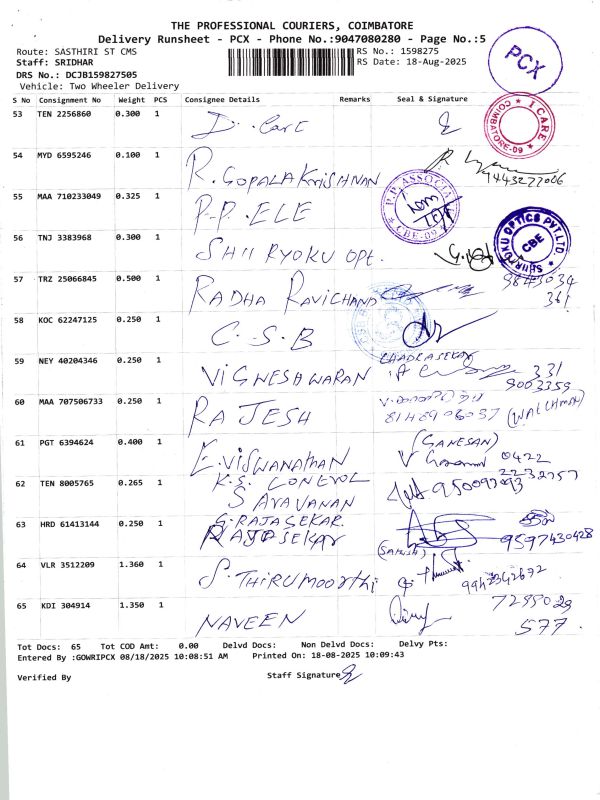 THE PROFESSIONAL COURIERS, COIMBATORE
Delivery Runsheet - PCX - Phone No.:9047080280 - Page No.:5
Route: SASTHIRI ST CMS RS No.: 1598275
Staff: SRIDHAR RS Date: 18-Aug-2025
DRS No.: DCJB159827505
Vehicle: Two Wheeler Delivery
PCX
S No Consignment No Weight PCS Consignee Details Remarks Seal & Signature
53 TEN 2256860 0.300 1 I CARE COIMBATORE-09
54 MYD 6595246 0.100 1 R. GOPALAKRISHNAN
55 MAA 710233049 0.325 1 P.P. ELE P.P. ASSOCIA CBE-09
56 TNJ 3383968 0.300 1 SHII RYOKU OPT. SHIIRYOKU OPTICS PVT.LTD CBE
57 TRZ 25066845 0.500 1 RADHA RAVICHAND 9843034
361
58 KOC 62247125 0.250 1 C.S.B
59 NEY 40204346 0.250 1 VIGNESHWARAN 331
60 MAA 707506733 0.250 1 RAJESH (WATCHMAN)
61 PGT 6394624 0.400 1 E. VISWANATHAN (GANESAN)
0422
2232757
62 TEN 8005765 0.265 1 K.S. CONTROL
SARAVANAN
63 HRD 61413144 0.250 1 G. RAJASEKAR
RAJASEKAR 9597430428
64 VLR 3512209 1.360 1 S. THIRUMOORTHI 9942342692
65 KDI 304914 1.350 1 NAVEEN 7299029
577.
Tot Docs: 65 Tot COD Amt: 0.00 Delvd Docs: Non Delvd Docs: Delvy Pts:
Entered By :GOWRIPCX 08/18/2025 10:08:51 AM Printed On: 18-08-2025 10:09:43
Verified By Staff Signature